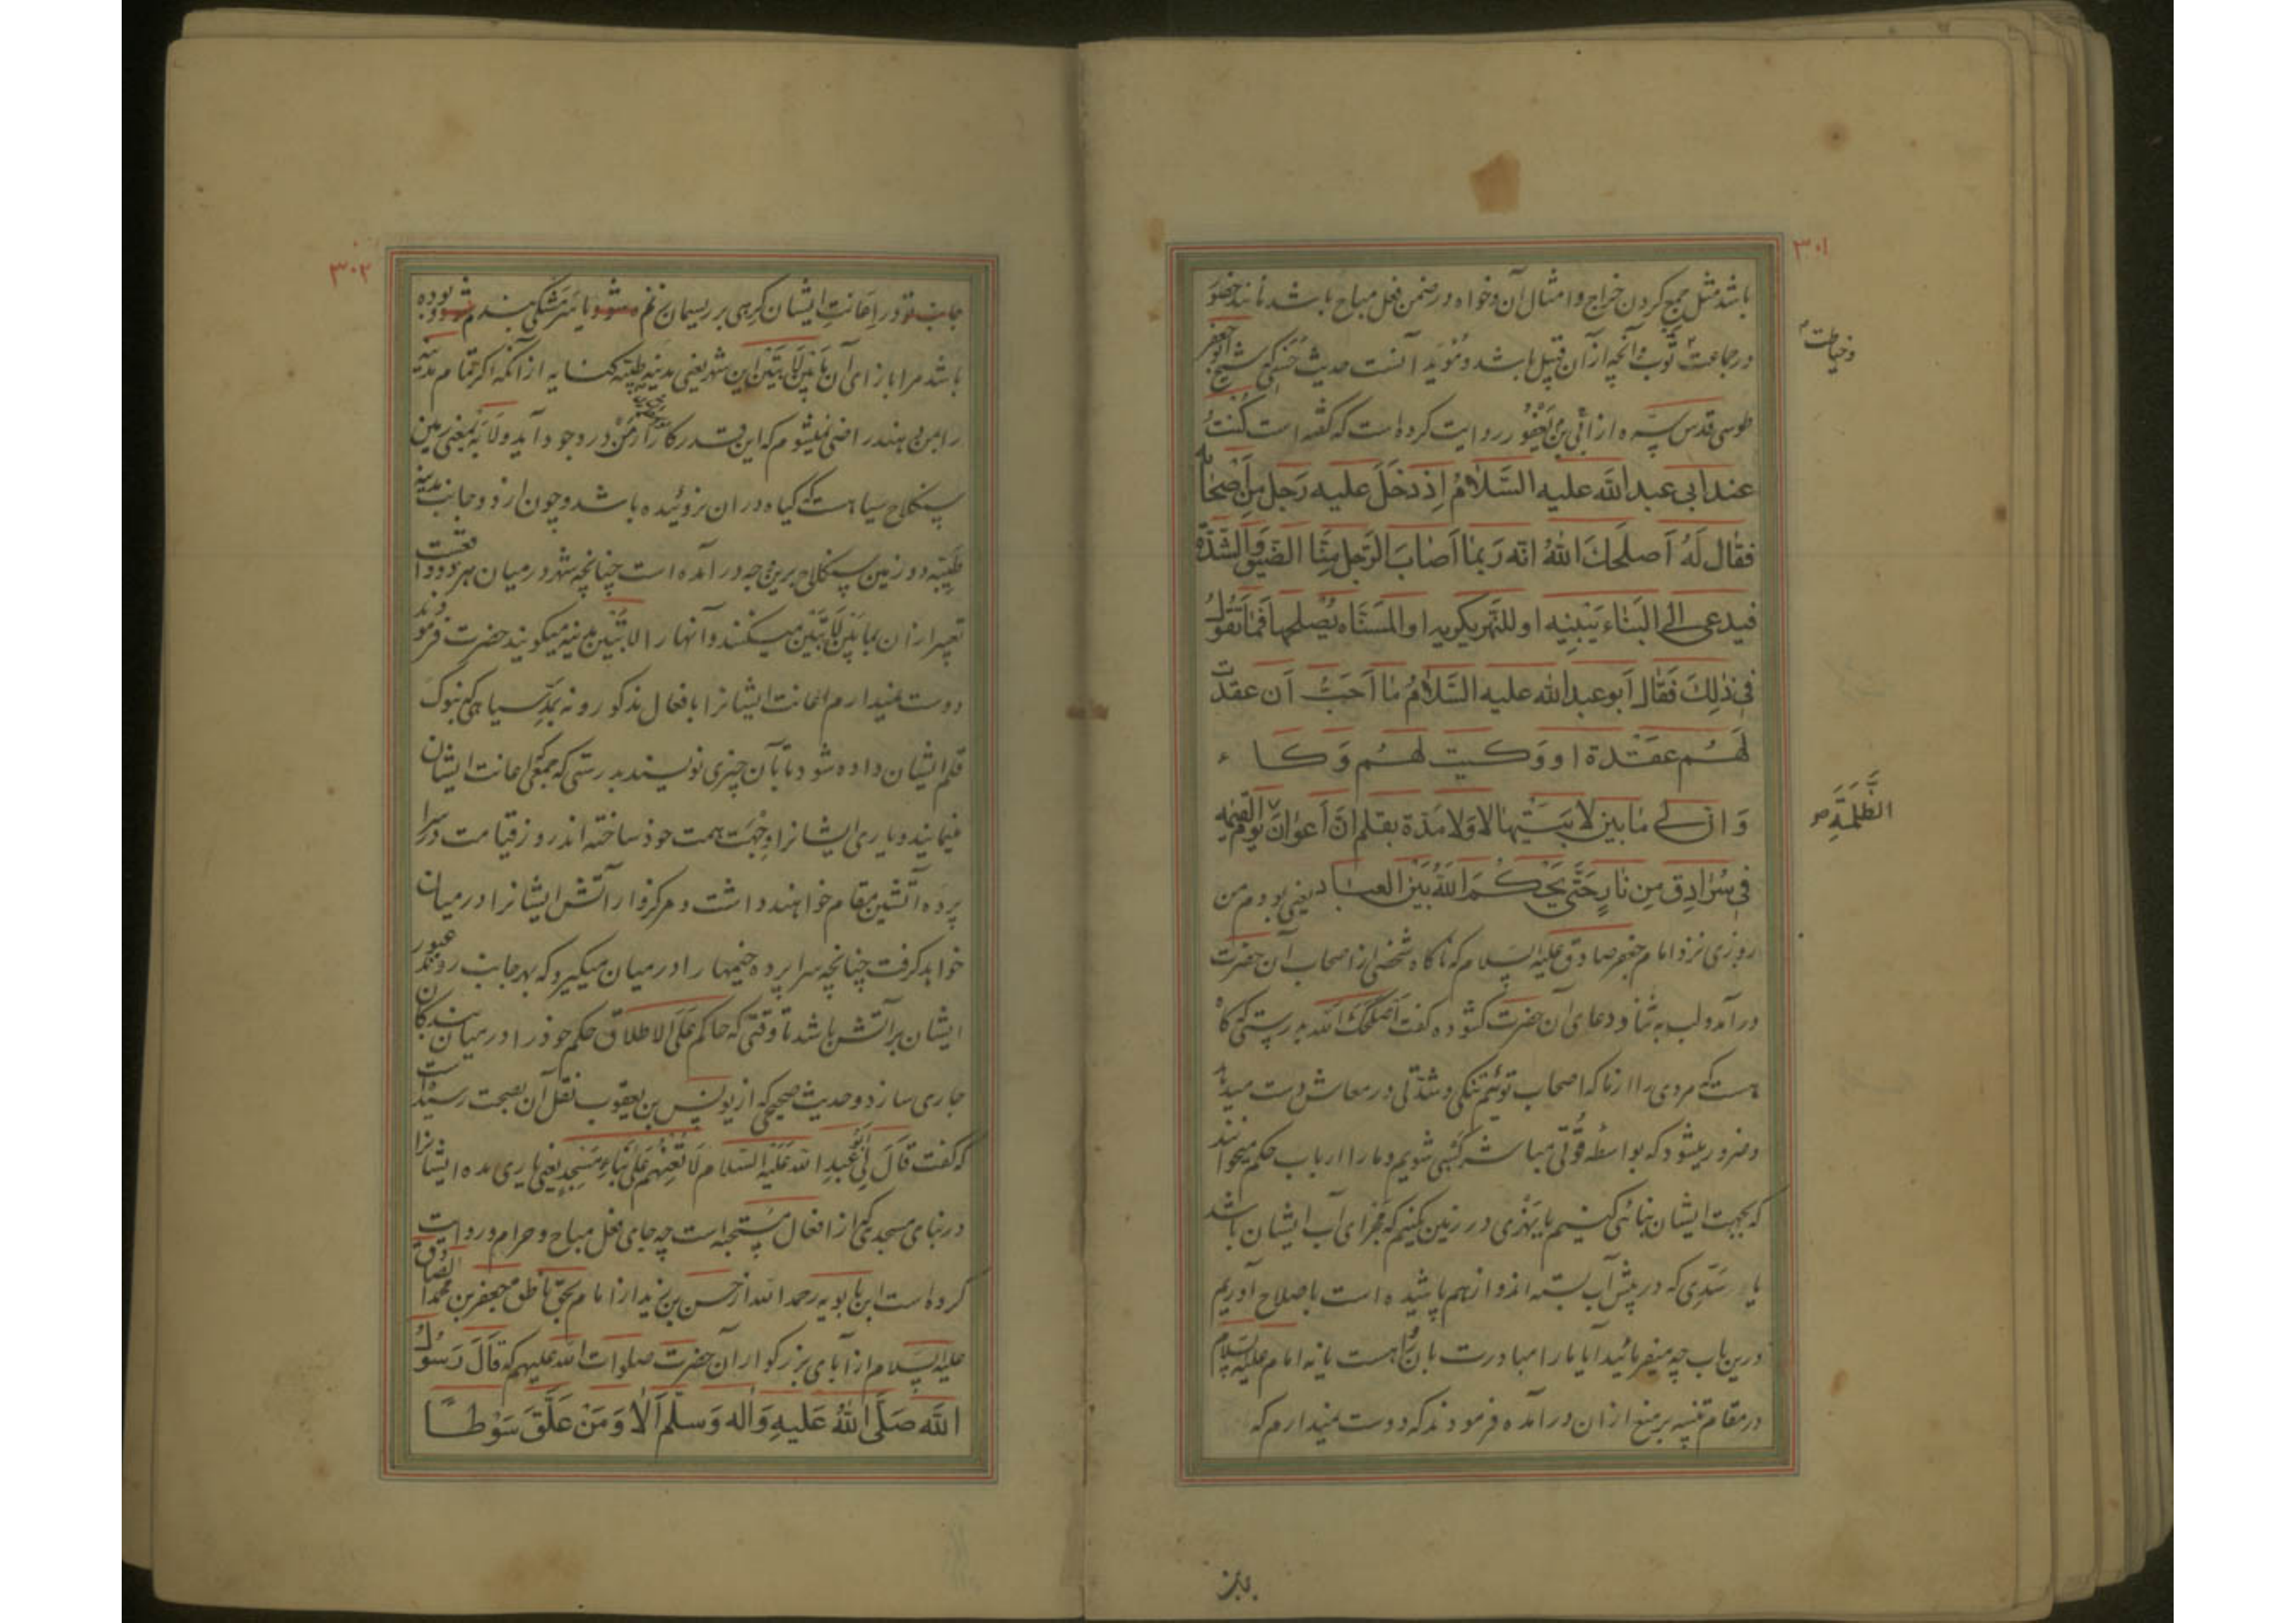 ۳۰۱
باشد مثل جمع کردن خراج و امثال آن و خواه در ضمن فعل مباح باشد مانند حضور
در جماعت و ثوب و آنچه از آن قبیل باشد و مؤید آنست حدیث حسنی که شیخ ابو جعفر
وخیاطت
طوسی قدس سره از ابی یعفور روایت کرده است که گفته است کُنتُ
عند ابی عبد الله علیه السَّلامُ اِذ دَخَلَ علیه رَجل مِن اَصحابه
فقال لَهُ اَصلحَكَ اللهُ انّه رَبما اَصابَ الرَجل مِنَّا الضَیق وَالشدّة
فیدعی الی البَناء یَبنِیه او للنَّهر یکریه او المسَنّاه یُصلحها فَمَا تَقُولُ
فی ذلِكَ فَقال اَبو عبد الله علیه السَّلامُ ما اُحَبّ اَن عقدت
لَهُم عقدة او وَکیت لهُم وَکاء
وَ ان لی ما بین لابَتیها لا وَلا مَدّة بقلم انَّ اَعوانَ یَوم القیمه
الظَّلَمَةِ
فی سُرادِق مِن نارٍ حَتّی یَحکُمَ اللهُ بَین العباد یعنی بودم من
روزی نزد امام جعفر صادق علیه السلام که ناگاه شخصی از اصحاب آن حضرت
درآمد و لب به ثنا و دعای آن حضرت گشوده گفت اَصلَحَكَ الله بدرستی که گاه
هست که مردی را از ما که اصحاب توئیم تنگی و شدّتی در معاش دست میدهد
و ضرور میشود که بواسطه قُوتی مباشر کَسبی شویم و ما را ارباب حکم میخوانند
که بجهت ایشان بنائی کنیم یا نهری در زمین بکنیم که مَجرای آب ایشان باشد
یا سَدّی که در پیش آب بسته اند و از هم پاشیده است باصلاح آوریم
درین باب چه میفرمائید آیا ما را مبادرت بآن رُوا هست یا نه امام علیه السلام
در مقام تنبیه بر منع از آن درآمده فرمودند که دوست نمیدارم که
۳۰۲
جانب تو در اِعانتِ ایشان گِرهی بر ریسمان زنم یا سَر مَشکی بندم بوده
باشد مرا بازای آن مابَین لابَتَین این شهر یعنی مدینه طیّبه کنایه از آنکه اگر تمام مدینه
را بمن بدهند راضی نمیشوم که این قدر کار از مَن در وجود آید و لابَه بمعنی زمین
سنگلاخ سیاهست که گیاه در آن نروئیده باشد و چون از دو جانب مدینه
طَیّبه دو زمین سنگلاخ برین وجه درآمده است چنانچه شهر در میان هر دو واقعست
تعبیر از آن بمابَین لابَتَین میکنند و آنها را لابَتَین مدینه میگویند حضرت فرمودند
دوست نمیدارم اعانت ایشانرا بافعال مذکور و نه بمَدّ سیاهی که بنوک
قلم ایشان داده شود تا بآن چیزی نویسند بدرستی که جمعی اعانت ایشان
مینمایند و یاری ایشانرا وِجهَت همت خود ساخته اند روز قیامت در سرا
پرده آتشین مقام خواهند داشت و مرکزوار آتش ایشانرا در میان
خواهد گرفت چنانچه سراپرده خیمها را در میان میگیرد که بهر جانب روند عبور
ایشان بر آتش باشد تا وقتی که حاکم عَلَی الاطلاق حکم خود را در میان بندگان
جاری سازد و حدیث صحیحی که از یونس بن یعقوب نقل آن بصحت رسیده است
که گفت قَالَ لی اَبُو عَبدِ الله عَلَیه السَّلام لا تُعِنهُم عَلی بَناءِ مَسجِدٍ یعنی یاری مده ایشانرا
در بنای مسجدی که از افعال مستحبّه است چه جای فعل مباح و حرام و روایت
کرده است ابن بابویه رحمه الله از حسن بن زید از امام بحق ناطق جعفر بن محمد الصادق
علیه السلام از آبای بزرگوار آن حضرت صلوات الله علیهم که قَالَ رَسُولُ
الله صَلَّی اللهُ عَلیهِ وَآله وَسلَّم اَلا وَمَن عَلَّقَ سَوْطاً